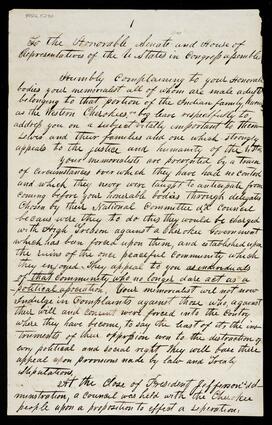 1
To the Honorable Senate and House of
Representatives of the U States in Congress assembled
Humbly Complaining to your Honorable
bodies your memorialist all of whom are male adults
belonging to that portion of the Indian family known
as the Western Cherokees, beg leave respectfully to
address you on a subject vitally important to them
selves and their families and one which strongly
appeals to the justice and humanity of the
Your memorialists are prevented by a train
of circumstances over which they have had no control
and which they never were taught to anticipate from
coming before your honorable bodies through delegates
Chosen by their National Committee and Council
because were they to do this they would be charged
with High Treason against a Cherokee Government
which has been forced upon them, and established upon
the ruins of the once peaceful community which
they enjoyed. They appeal to you as individuals
of that community who no longer dare act as a
political association. Your memorialist will not now
Indulge in Complaints against those who, against
their will and consent were forced into the Country
where they have become, to say the least of it, the in-
struments of their oppression now to the destruction of
every political and social right they will base their
appeal upon provisions made by law and Treaty
Stipulations,
At the Close of President Jefferson's ad-
ministration, a council was held with the Cherokee
people upon a proposition to effect a seperation,